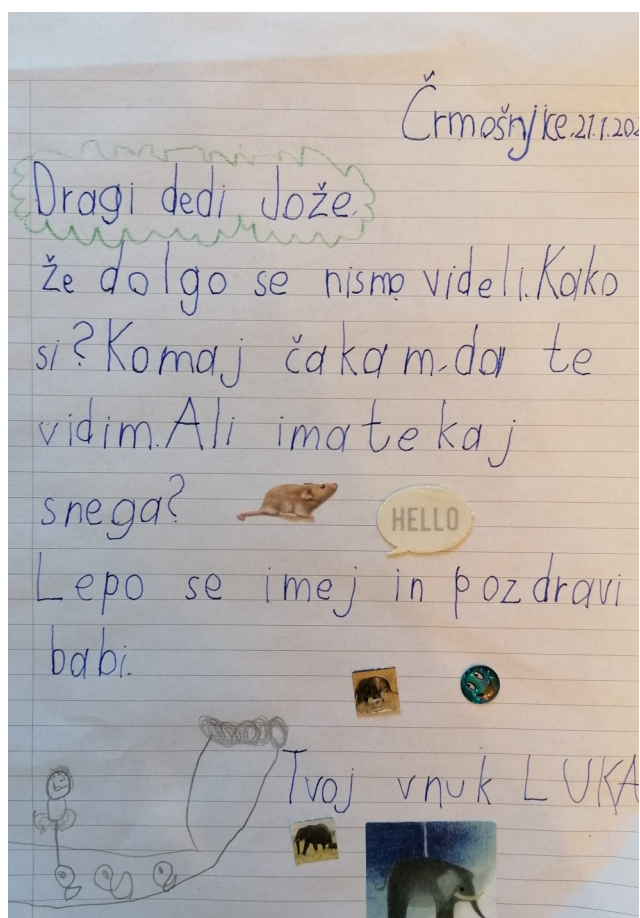 Črmošnjice.21.1.202
Dragi dedi Jože,
že dolgo se nismo videli.Kako
si?Komaj čakam,da te
vidim.Ali imate kaj
snega?
HELLO
Lepo se imej in pozdravi
babi.
Tvoj vnuk LUKA